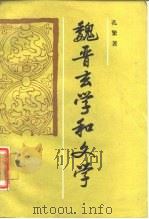 孔繁著
魏晋玄学和文学